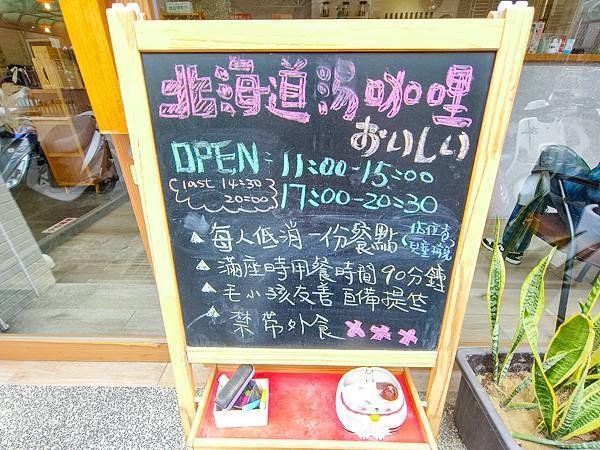 北海道湯咖哩
おいしい
OPEN: 11:00-15:00
last 14:30
17:00-20:30
20:00
每人低消一份餐點
滿座時用餐時間90分鐘
毛小孩友善自備提
禁帶外食